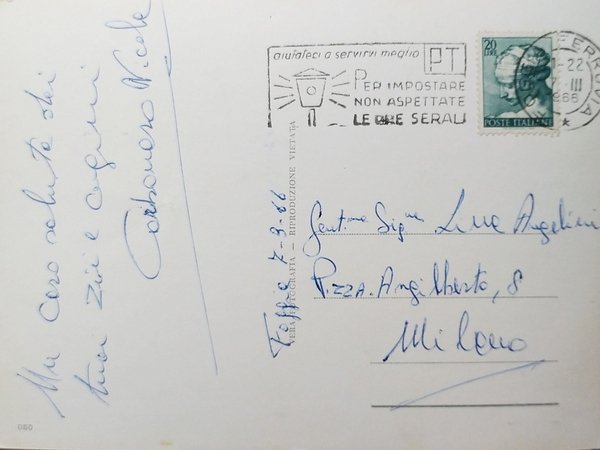 Un Caro saluto dai
tuoi Zii e cugini
Carbonara Nicola
Foggia 7-3-66
VERA FOTOGRAFIA — RIPRODUZIONE VIETATA
aiutateci a servirvi meglio
PT
PER IMPOSTARE
NON ASPETTATE
LE ORE SERALI
20
LIRE
POSTE ITALIANE
FERROVIA
-22
7 III
1966
Gent.ma Sig.na Lina Angelini
P.zza. Angilberto, 8
Milano
080